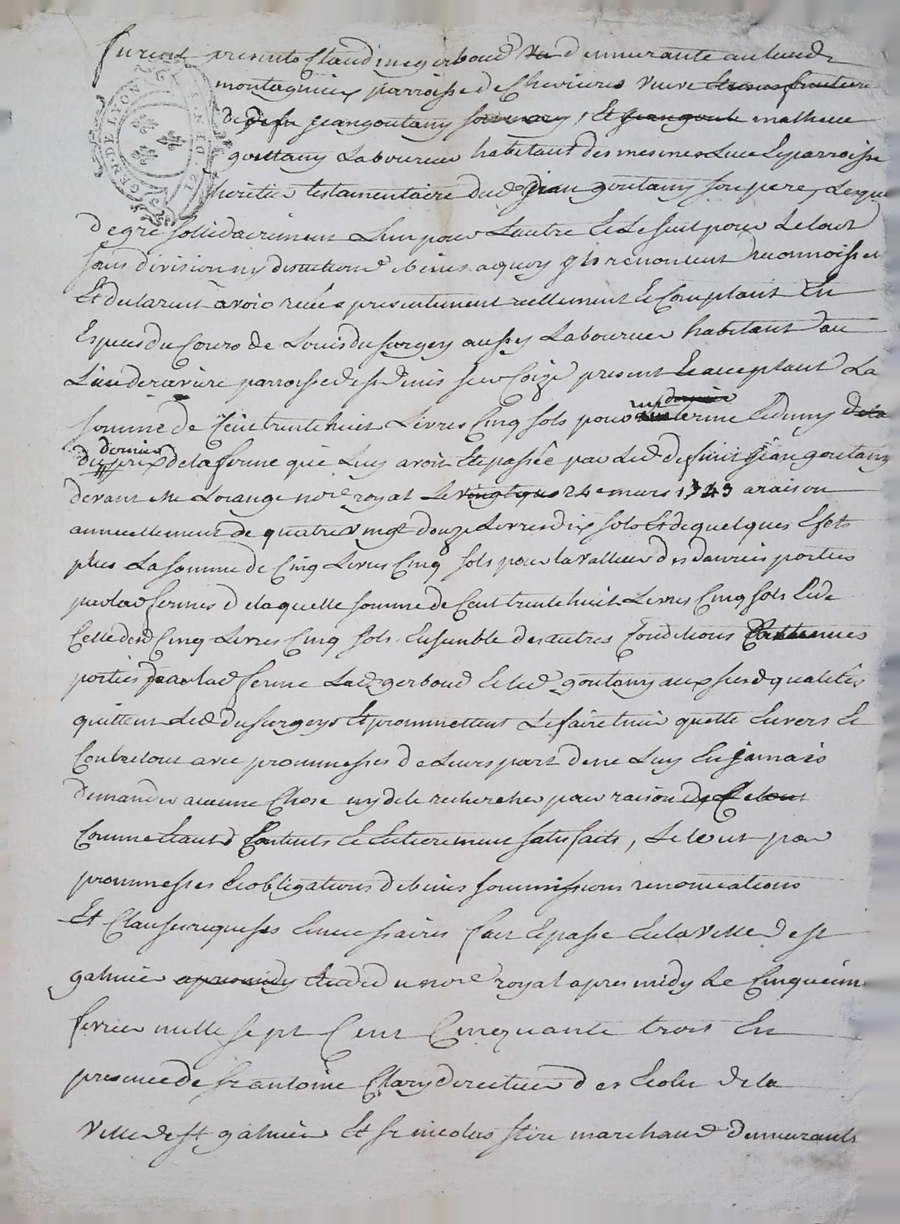 GEN. DE LYON
12 D.
furent presents Claudine gerboud demeurante au lieu de
montagnieu parroisse de Chevrieres veuve
de jean goutany, Et mathieu
goutany Laboureur habitant des mesmes Lieu Et parroisse
heritier testamentaire dud jean goutany son pere, Lesque
de gré sollidairement L'un pour L'autre Et Le seul pour Le tout
sans division ny discution de biens a quoy ils renoncent reconnoissent
Et declarent avoir reçeu presentement reellement Et Comptant En
Especes du Cours de Louis dusurgey aussy Laboureur habitant du
Lieu de parroisse de st denis sur Coize present Et acceptant La
somme de Cent trente huit Livres Cinq sols pour terme Et demy
dernier
du prix de la ferme que Luy avoit Eté passée par Led defunt jean goutany
devant Me Lorange nore royal Le 24e mars 1743 a raison
annuellement de quatre vingt douze Livres dix sols Et de quelques Efets
plus La somme de Cinq Livres Cinq sols pour la valleur des danrées portées
par lad ferme de laquelle somme de Cent trente huit Livres Cinq sols Et de
Celle de Cinq Livres Cinq sols Ensemble des autres Conditions
portées par lad ferme Lad gerboud Et led goutany aux susd qualités
quittent Led dusurgey Et promettent Le faire tenir quitte Envers Et
Contre tous avec promesses de Leurs part de ne Luy En jamais
demander aucune Chose ny de le rechercher pour raison
Comme Etant Contents Et Entierement satisfaits, Le tout par
promesses Et obligations de biens soumissions renonciations
Et Clauses requises Et necessaires fait Et passé En la ville de st
galmier nore royal apres midy Le Cinquieme
fevrier mille sept Cent Cinquante trois En
presence de sr antoine Clary directeur des Ecoles de la
ville de st galmier Et sr nicolas marchand demeurants